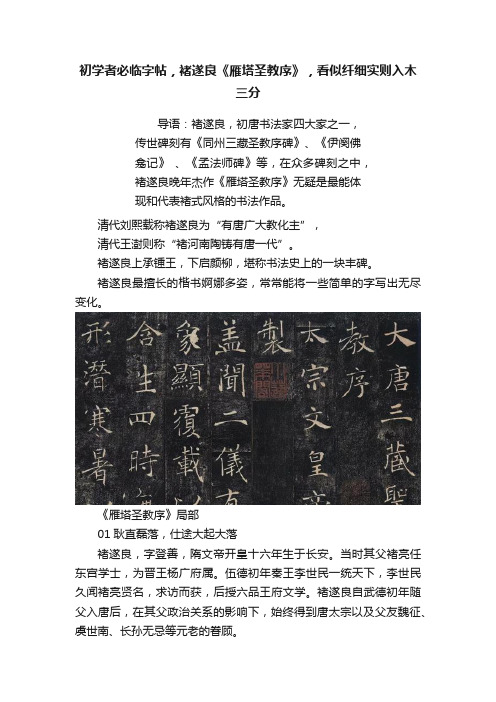 初学者必临字帖，褚遂良《雁塔圣教序》，看似纤细实则入木
三分
导语：褚遂良，初唐书法家四大家之一，
传世碑刻有《同州三藏圣教序碑》、《伊阙佛
龛记》 、《孟法师碑》等，在众多碑刻之中，
褚遂良晚年杰作《雁塔圣教序》无疑是最能体
现和代表褚式风格的书法作品。
清代刘熙载称褚遂良为“有唐广大教化主”，
清代王澍则称“褚河南陶铸有唐一代”。
褚遂良上承锺王，下启颜柳，堪称书法史上的一块丰碑。
褚遂良最擅长的楷书婀娜多姿，常常能将一些简单的字写出无尽
变化。
大唐三藏聖
教序
太宗文皇帝
製
盖聞二儀有
象顯覆載以
含生四時
形潛寒暑
《雁塔圣教序》局部
01 耿直磊落，仕途大起大落
褚遂良，字登善，隋文帝开皇十六年生于长安。当时其父褚亮任
东宫学士，为晋王杨广府属。伍德初年秦王李世民一统天下，李世民
久闻褚亮贤名，求访而获，后授六品王府文学。褚遂良自武德初年随
父入唐后，在其父政治关系的影响下，始终得到唐太宗以及父友魏征、
虞世南、长孙无忌等元老的眷顾。